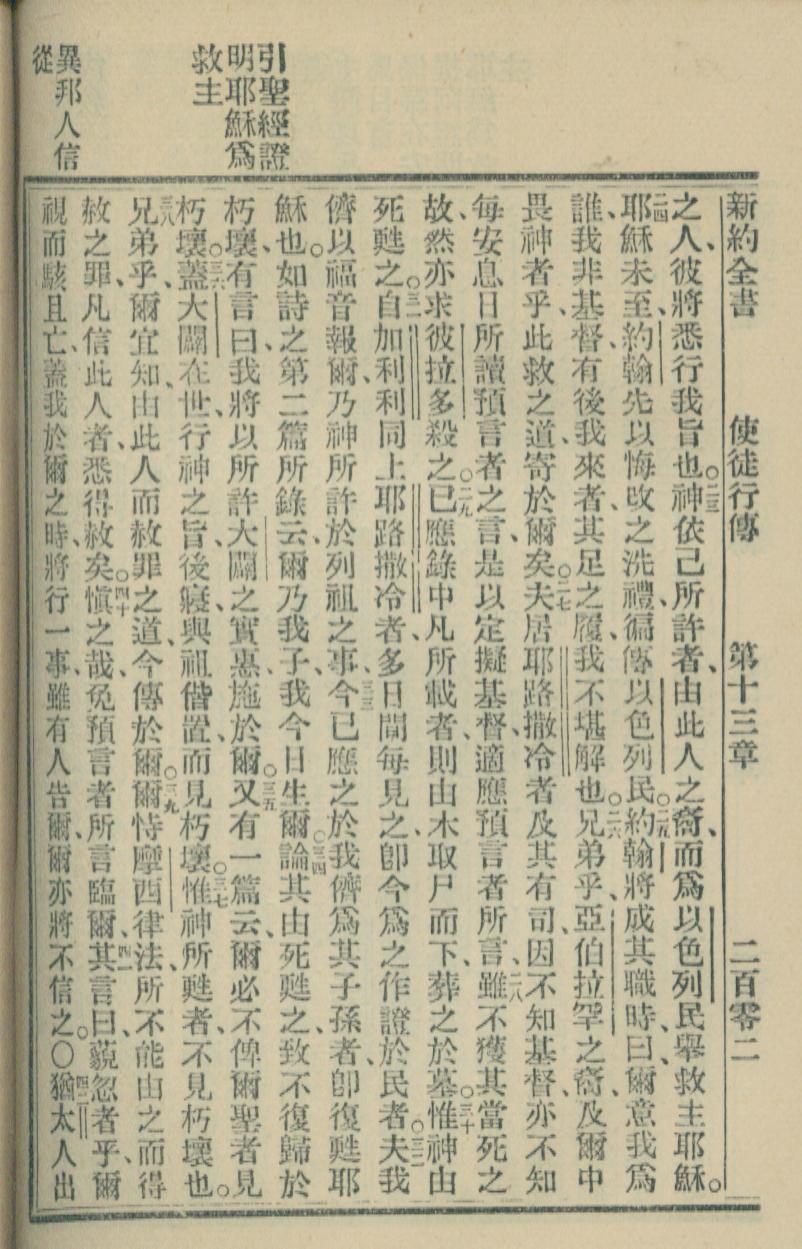 新約全書　使徒行傳　第十三章　二百零二
之人、彼將悉行我旨也。二三神依己所許者、由此人之裔、而爲以色列民舉救主耶穌。
二四耶穌未至、約翰先以悔改之洗禮、徧傳以色列民。二五約翰將成其職時、曰、爾意我爲
誰、我非基督、有後我來者、其足之履、我不堪解也。二六兄弟乎、亞伯拉罕之裔、及爾中
畏神者乎、此救之道、寄於爾矣。二七夫居耶路撒冷者、及其有司、因不知基督、亦不知
每安息日所讀預言者之言、是以定擬基督、適應預言者所言、二八雖不獲其當死之
故、然亦求彼拉多殺之。二九已應錄中凡所載者、則由木取尸而下、葬之於墓。三十惟神由
死甦之。三一自加利利同上耶路撒冷者、多日間每見之、卽今爲之作證於民者。三二夫我
儕以福音報爾、乃神所許於列祖之事、三三今已應之於我儕爲其子孫者、卽復甦耶
穌也。如詩之第二篇所錄云、爾乃我子、我今日生爾。三四論其由死甦之、致不復歸於
朽壞、有言曰、我將以所許大闢之實惠、施於爾。三五又有一篇云、爾必不俾爾聖者見
朽壞。三六蓋大闢在世、行神之旨、後寢、與祖偕置、而見朽壞。三七惟神所甦者、不見朽壞也。
三八兄弟乎、爾宜知由此人而赦罪之道、今傳於爾。三九爾恃摩西律法、所不能由之而得
赦之罪、凡信此人者、悉得赦矣。四十愼之哉、免預言者所言臨爾、四一其言曰、藐忽者乎、爾
視而駭且亡、蓋我於爾之時、將行一事、雖有人告爾、爾亦將不信之。〇四二猶太人出
引聖經證
明耶穌爲
救主
異邦人信
從